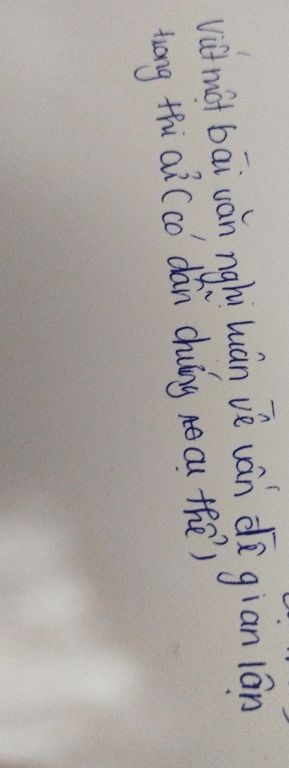 Viết một bài văn nghị luận về vấn đề gian lận
trong thi cử (có dẫn chứng cụ thể)